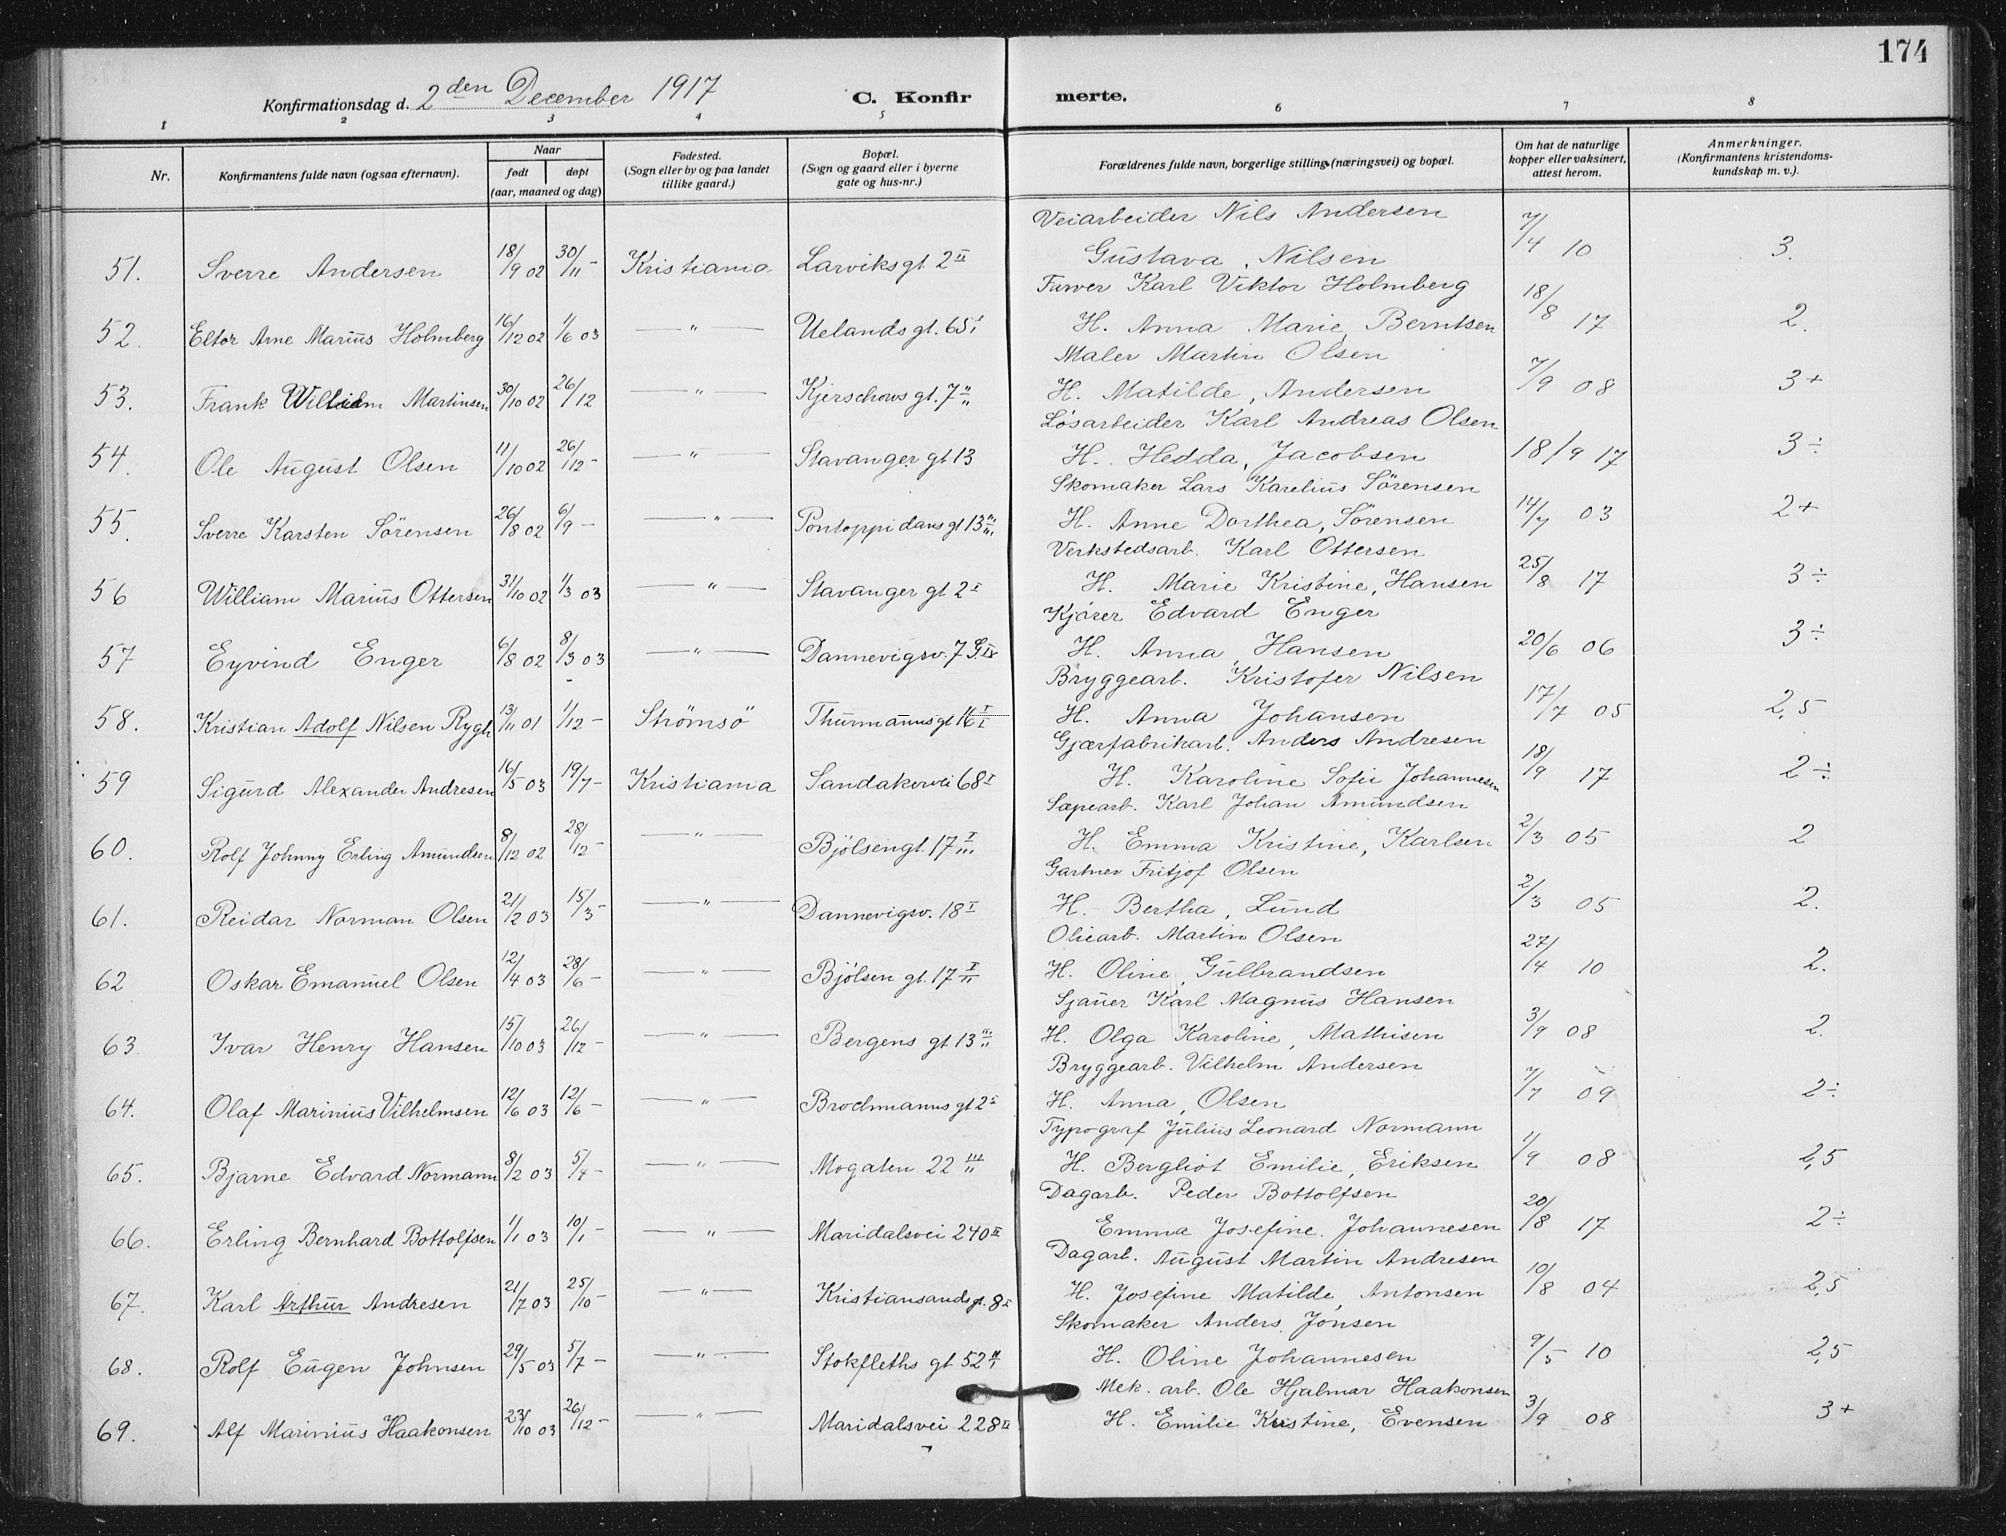 174
Konfirmationsdag d. 2den December 1917 C. Konfir merte.
1 2 3 4 5 6 7 8
Nr. Konfirmantens fulde navn (ogsaa efternavn). Naar født døpt (aar, maaned og dag) Fødested. (Sogn eller by og paa landet tillike gaard.) Bopæl. (Sogn og gaard eller i byerne gate og hus-nr.) Forældrenes fulde navn, borgerlige stilling (næringsvei) og bopæl. Om hat de naturlige kopper eller vaksinert, attest herom. Anmerkninger. (Konfirmantens kristendomskundskap m. v.).
Veiarbeider Nils Andersen
51. Sverre Andersen 18/9 02 30/11 - Kristiania Larviksgt 2 II Gustava, Nilsen 7/4 10 3.
Farver Karl Viktor Holmberg
52. Eltor Arne Marius Holmberg 16/12 02 1/6 03 — " — Uelands gt. 65 I H. Anna Marie, Berntsen 18/8 17 2.
Maler Martin Olsen
53. Frank William Martinsen 30/10 02 26/12 — " — Kjerschows gt. 7 H. Matilde, Andersen 7/9 08 3+
Løsarbeider Karl Andreas Olsen
54. Ole August Olsen 11/10 02 26/12 - — " — Stavanger gt 13 H. Hedda, Jacobsen 18/9 17 3÷
Skomaker Lars Karelius Sørensen
55. Sverre Karsten Sørensen 26/8 02 6/9 - — " — Pontoppidans gt 13 H. Anne Dorthea, Sørensen 14/7 03 2+
Verkstedsarb. Karl Ottersen
56 William Marius Ottersen 31/10 02 1/3 03 — " — Stavanger gt 2 I H. Marie Kristine, Hansen 25/8 17 3÷
Kjører Edvard Enger
57 Eyvind Enger 6/8 02 8/3 03 — " — Dannevigsv. 7 H. Anna Hansen 20/6 06 3÷
Bryggearb. Kristofer Nilsen
58. Kristian Adolf Nilsen Rygh 13/11 01 1/12 - Strømsö Thurmanns gt 16 I/I H. Anna Johansen 17/7 05 2,5
Gjærfabrikarb. Anders Andresen
59 Sigurd Alexander Andresen 16/5 03 19/7 - Kristiania Sandakervei 68 I H. Karoline Sofie Johannesen 18/9 17 2÷
Sæpearb. Karl Johan Amundsen
60. Rolf Johnny Erling Amundsen 8/12 02 28/12 - — " — Bjølsengt. 17 I/III H. Emma Kristine, Karlsen 2/3 05 2
Gartner Fritjof Olsen
61. Reidar Norman Olsen 21/2 03 15/3 - — " — Dannevigsv. 18 I H. Bertha, Lund 2/3 05 2.
Oliearb. Martin Olsen
62 Oskar Emanuel Olsen 12/4 03 28/6 - — " — Bjølsen gt. 17 I/II H. Oline, Gulbrandsen 27/4 10 2.
Sjauer Karl Magnus Hansen
63. Yvar Henry Hansen 15/10 03 26/12 - — " — Bergens gt 13 III/II H. Olga Karoline, Mathisen 3/9 08 2.
Bryggearb. Vilhelm Andersen
64. Olaf Marinius Vilhelmsen 12/6 03 12/6 - — " — Brochmanns gt 2 I H. Anna, Olsen 7/7 09 2÷
Typograf Julius Leonard Normann
65. Bjarne Edvard Normann 8/2 03 5/4 - — " — Mogaten 22 III/II H. Bergliot Emilie, Eriksen 1/9 08 2,5
Dagarb. Peder Bottolfsen
66. Erling Bernhard Bottolfsen 1/1 03 10/1 - — " — Maridalsvei 240 II Emma Josefine Johannesen 20/8 17 2÷
Dagarb. August Martin Andresen
67. Karl Arthur Andresen 21/7 03 25/10 - — " — Kristiansands gt. 8 I H. Josefine Matilde, Antonsen 10/8 04 2,5
Skomaker Anders Jonsen
68. Rolf Eugen Johnsen 29/5 03 5/7 - — " — Stokfleths gt 52 II/I H. Oline Johannesen 9/5 10 2,5
Mek. arb. Ole Hjalmar Haakonsen
69. Alf Marinius Haakonsen 23/10 03 26/12 - — " — Maridalsvei 228 II H. Emilie Kristine, Evensen 3/9 08 3+